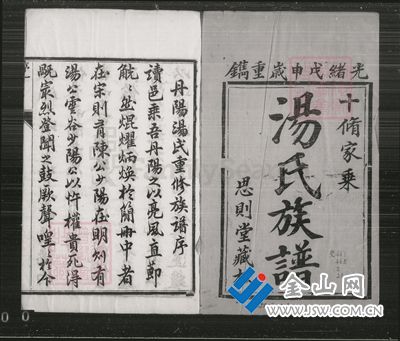 光緒戊申歲重鐫
十脩家乘
湯氏族譜
思則堂藏
丹陽湯氏重脩族譜序
讀邑乘吾丹陽之以亮風直節
能能然焜燿炳焕於簡冊中者
在宋則有陳公少陽在明則有
湯公雲谷少陽公以忤權貴死得
旣家列登聞之鼓厥聲喤喤於今
金山网
JSW.COM.CN